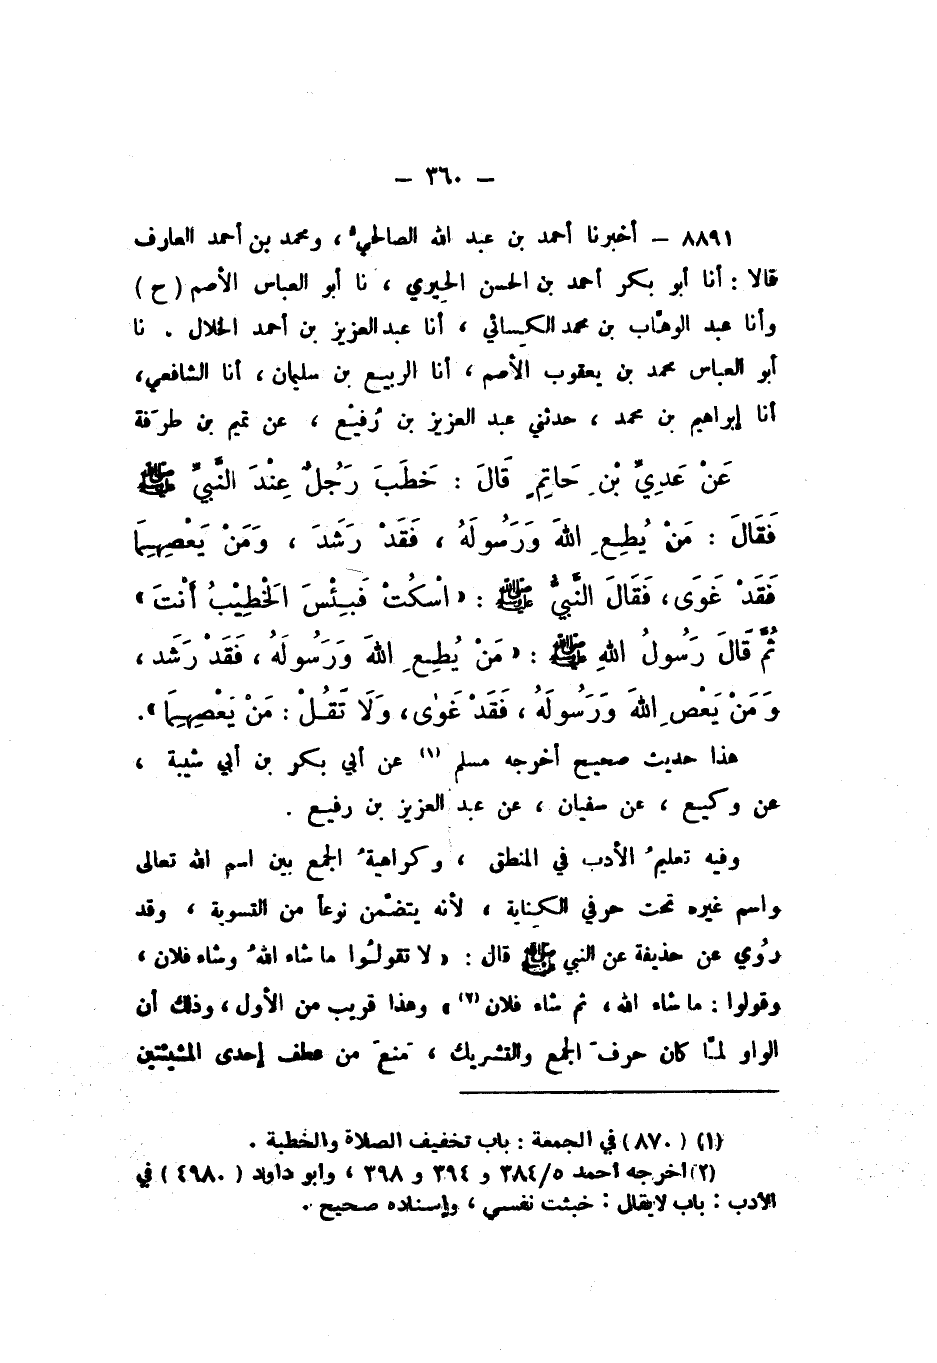 — ٣٦٠ —
٨٨٩١ — أخبرنا أحمد بن عبد الله الصالحيُّ ، ومحمد بن أحمد العارف
قالا : أنا أبو بكر أحمد بن الحسن الحِيري ، نا أبو العباس الأصم ( ح )
وأنا عبد الوهّاب بن محمد الكسائي ، أنا عبد العزيز بن أحمد الخلال . نا
أبو العباس محمد بن يعقوب الأصم ، أنا الربيع بن سليمان ، أنا الشافعي،
أنا إبراهيم بن محمد ، حدثني عبد العزيز بن رُفيْع ، عن تميم بن طرَفة
عَنْ عَدِيِّ بْنِ حَاتِمٍ قَالَ : خَطَبَ رَجُلٌ عِنْدَ النَّبِيِّ ﷺ
فَقَالَ : مَنْ يُطِعِ اللهَ وَرَسُولَهُ ، فَقَدْ رَشَدَ ، وَمَنْ يَعْصِهِمَا
فَقَدْ غَوَى، فَقَالَ النَّبِيُّ ﷺ : « اسْكُتْ فَبِئْسَ الخَطِيْبُ أَنْتَ »
ثُمَّ قَالَ رَسُولُ اللهِ ﷺ : « مَنْ يُطِعِ اللهَ وَرَسُولَهُ ، فَقَدْ رَشَد ،
وَمَنْ يَعْصِ اللهَ وَرَسُولَهُ ، فَقَدْ غَوٰى، وَلَا تَقُلْ : مَنْ يَعْصِهِمَا ».
هذا حديث صحيح أخرجه مسلم (١) عن أبي بكر بن أبي شيبة ،
عن وكيع ، عن سفيان ، عن عبد العزيز بن رفيع .
وفيه تعليمُ الأدب في المنطق ، وكراهيةُ الجمع بين اسم الله تعالى
واسم غيره تحت حرفي الكناية ، لأنه يتضمّن نوعاً من التسوية ، وقد
رُوي عن حذيفة عن النبي ﷺ قال : « لا تقولُوا ما شاء اللهُ وشاء فلان ،
وقولوا : ما شاء الله ، ثم شاء فلان (٢) » وهذا قريب من الأول ، وذلك أن
الواو لمّا كان حرفَ الجمع والتشريك ، مَنعَ من عطف إحدى المشيئتين
(١) ( ٨٧٠ ) في الجمعة : باب تخفيف الصلاة والخطبة .
(٢) أخرجه أحمد ٣٨٤/٥ و ٣٩٤ و ٣٩٨ ، وأبو داود ( ٤٩٨٠ ) في
الأدب : باب لا يقال : خبثت نفسي ، وإسناده صحيح .